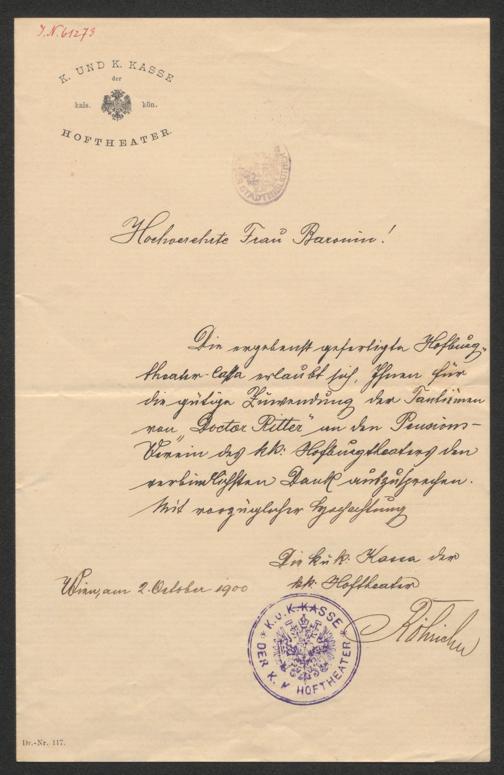 J.N. 61273
K. UND K. KASSE
der
kais. kön.
HOFTHEATER.
STADTBIBLIOTHEK
Hochverehrte Frau Baronin!
Die ergebenst gefertigte Hofburg-
theater-Cassa erlaubt sich, Ihnen für
die gütige Zuwendung der Tantiemen
von "Doctor Ritter" an den Pensions-
Verein des kk. Hofburgtheaters den
verbindlichsten Dank auszusprechen.
Mit vorzüglicher Hochachtung
Die k.u.k. Kassa der
kk. Hoftheater
Wien, am 2. October 1900
K.U.K. KASSE
DER K. K. HOFTHEATER
Dr.-Nr. 117.